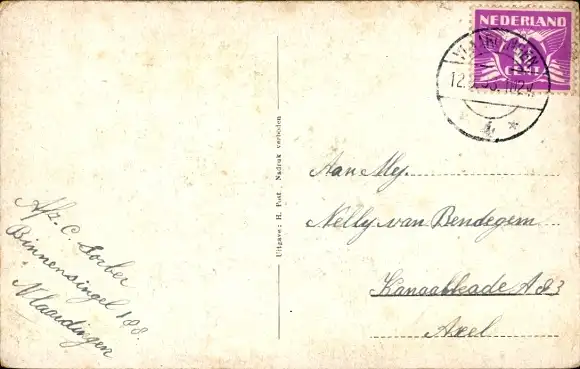 NEDERLAND
VLAARDINGEN
4
Uitgave: H. Pott. Nadruk verboden
Aan Mej.
Nelly van Bendegem
Kanaalkade A 83
Axel
Afz. C. Sorber
Binnensingel 188.
Vlaardingen